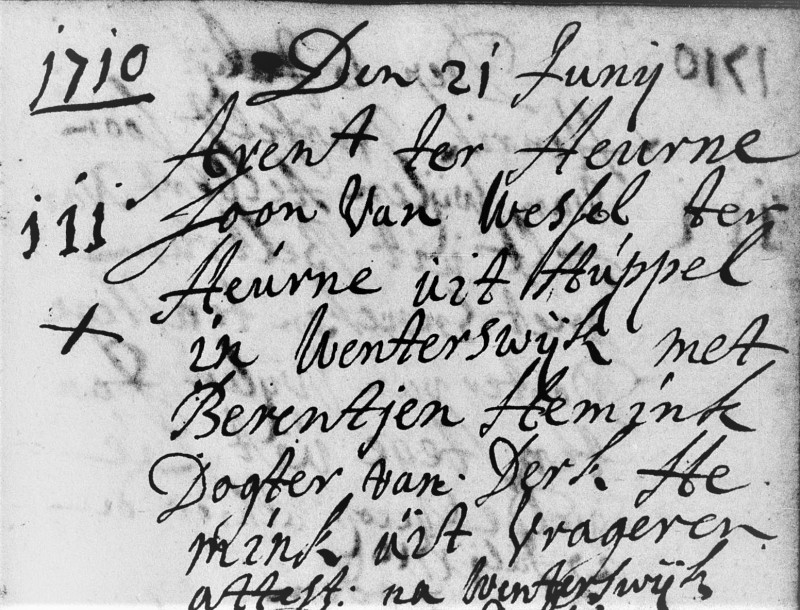 1710 Den 21 Junij
Arent ter Heurne
iii Zoon van Wessel ter
Heúrne uit Húppel
+ in Wenterswijk met
Berentjen Hemink
Dogter van Derk He
mink uit Vrageren
attest: na Wenterswijk